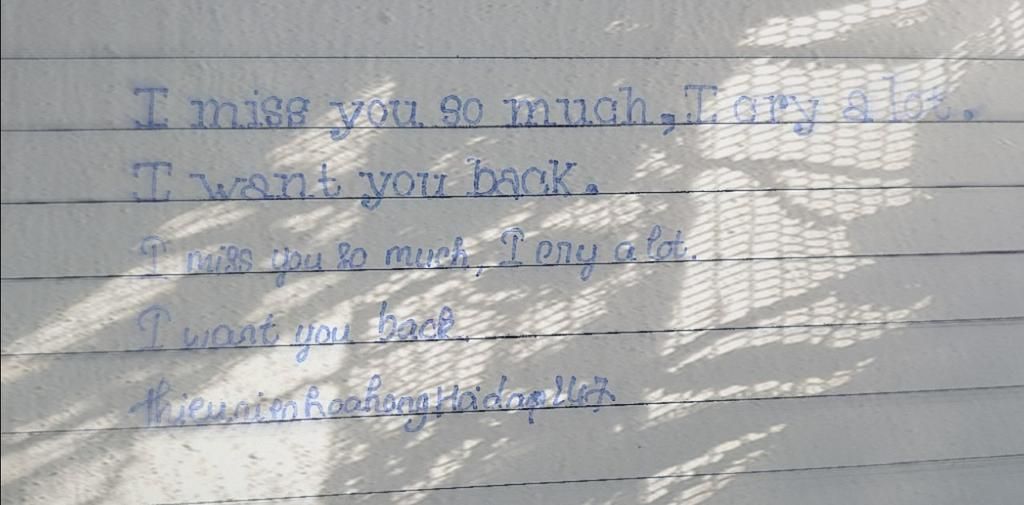 I miss you so much, I cry a lot.
I want you back.
I miss you so much, I cry a lot.
I want you back.
thieunienhoahongHaidap247